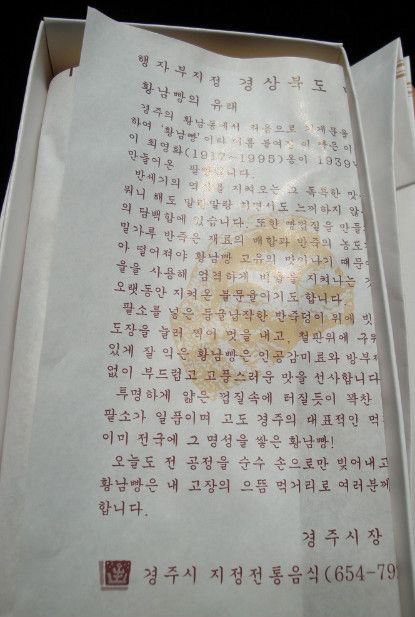 행자부지정 경상북도
황남빵의 유래
경주의 황남동에서 처음으로
하여 '황남빵'이라 이름 붙여진 이 빵은
이 최영화(1917-1995)옹이 1939
만들어온 팥빵입니다.
반세기의 역사를 지켜오는 그 독특한 맛
뭐니 해도 말랑말랑 하면서도 느끼하지 않
의 담백함에 있습니다. 또한 빵껍질을 만들
밀가루 반죽은 재료의 배합과 반죽의 농도
아 떨어져야 황남빵 고유의 맛이나기 때문
을을 사용해 엄격하게 비법을 지켜나는
오랫동안 지켜온 불문율이기도 합니다.
팥소를 넣은 둥글납작한 반죽덩이 위에 빗
도장을 눌러 찍어 멋을 내고, 철판위에 구워
있게 잘 익은 황남빵은 인공감미료와 방부
없이 부드럽고 고풍스러운 맛을 선사합니다
투명하게 얇은 껍질속에 터질듯이 꽉찬
팥소가 일품이며 고도 경주의 대표적인 먹
이미 전국에 그 명성을 쌓은 황남빵!
오늘도 전 공정을 순수 손으로만 빚어내고
황남빵은 내 고장의 으뜸 먹거리로 여러분께
합니다.
경주시장
경주시 지정전통음식(654-79